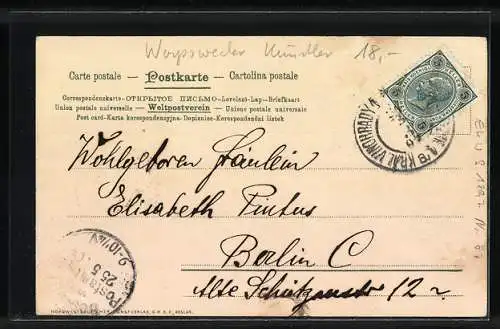 Worpsweder Künstler 18,-
Carte postale — Postkarte — Cartolina postale
Correspondenzkarte–ОТКРЫТОЕ ПИСЬМО–Levelezö-Lap–Briefkaart
Union postale universelle — Weltpostverein — Unione postale universale
Post card–Karta korrespondencyjna–Dopisnice–Korespondenční lístek
KRÁL. VINOHRADY
Wohlgeboren Fräulein
Elisabeth Pintus
Berlin C
Alte Schützenstr 12
9-10½V
25 5